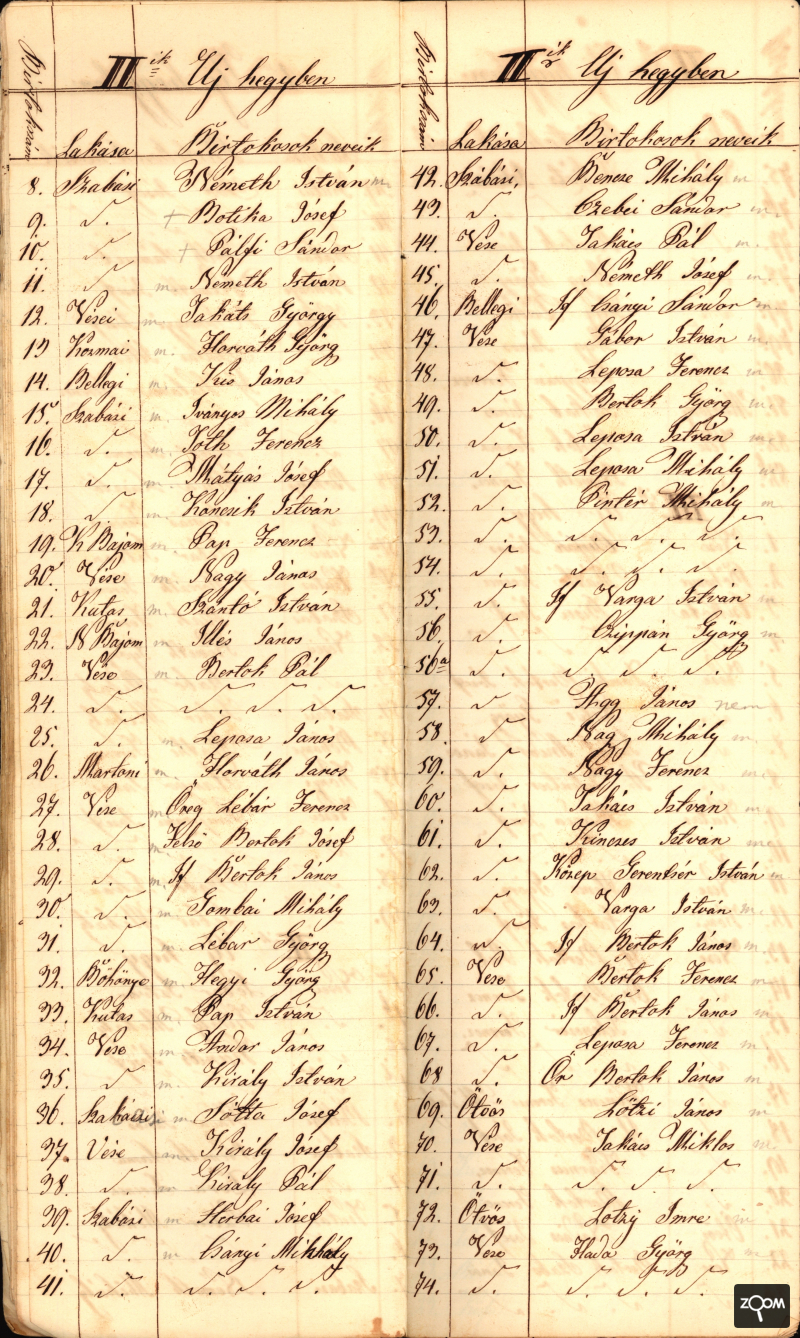 IIik Uj hegyben
Birtokszám Lakása Birtokosok neveik
8. Szabási Németh István m
9. " + Botika Jósef
10. " + Pálfi Sándor
11. " m. Németh István
12. Vései m Takáts György
13 Kozmai m. Horváth Györg
14. Bellegi m. Kis János
15. Szabási m Iványos Mihály
16. " m Tóth Ferencz
17. " m Mátyás Jósef
18. " m István
19. K Bajom m Pap Ferencz
20. Vése m. Nagy János
21. Kutas m. Szántó István
22. N Bajom m Illés János
23. Vése m Bertok Pál
24. " " " "
25. " m. Leposa János
26. Martoni m Horváth János
27. Vése m Öreg Lébár Ferencz
28. " m Felső Bertok Jósef
29. " m If Bertok János
30. " m Gombai Mihály
31. " m. Lébár Györg
32. Böhönye m Hegyi Györg
33. Kutas m. Pap István
34. Vése m Andor János
35. " m. Király István
36. m Jósef
37. Vése m Király Jósef
38. " m Király Pál
39. Szabási m Herbai Jósef
40. " m Csányi Mihhály
41. " " " "
IIik Uj hegyben
Birtokszám Lakása Birtokosok neveik
42. Szábási, Bencze Mihály m
43. " Czebei Sándor m.
44. Vése Takács Pál m.
45. " Németh Jósef m.
46. Bellegi If Csányi Sándor m
47. Vése Gábor István m.
48. " Leposa Ferencz m
49. " Bertok Györg m.
50. " Leposa István m.
51. " Leposa Mihály m
52. " Pintér Mihály m
53. " " " "
54. " " " "
55. " If Varga István m
56. " Czippán Györg m
56a " " " "
57. " Agg János nem
58. " Nag Mihály m
59. " Nagy Ferencz m
60. " Takács István m
61. " Kinczes István m
62. " Közep Gerentsér István m
63. " Varga István m.
64. " If Bertok János m
65. Vése Bertok Ferencz m
66. " If Bertok János m
67. " Leposa Ferencz m.
68 " Ör Bertok János m
69. Ötvös Lötzi János m
70. Vése Takács Miklos m.
71. " " " "
72. Ötvös Lotzÿ Imre m
73. Vése Hada Györg
74. " " " "
ZOOM